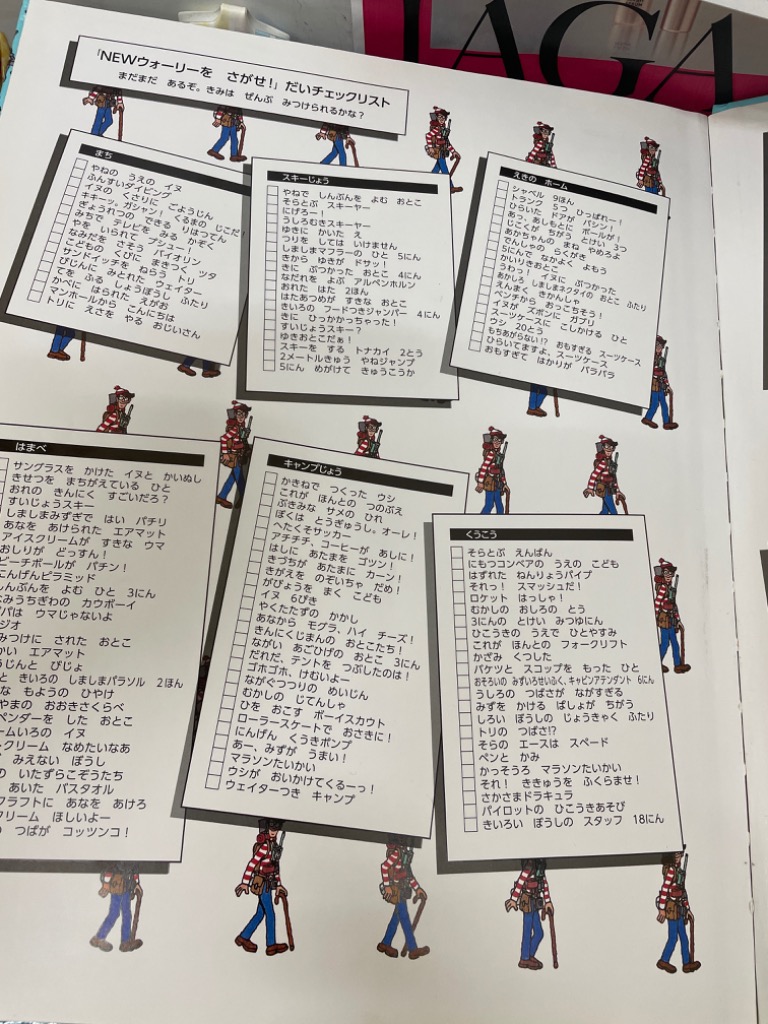 AGA
「NEWウォーリーを さがせ!」だいチェックリスト
まだまだ あるぞ。きみは ぜんぶ みつけられるかな?
まち
やねの うえの イヌ
ふんすいダイビング
イヌの くさりに ごようじん
キキーッ。ガシャン! くるまの じこだ!
ぎょうれつの できる りはつてん
みちで テレビを みる かぞく
やを いられて プシュー!
なみだを さそう バイオリン
こどもの くびに まきつく ツタ
サンドイッチを ねらう トリ
びじんに みとれた ウェイター
てを ふる しょうぼうし ふたり
かべに はられた えがお
マンホールから こんにちは
トリに えさを やる おじいさん
スキーじょう
やねで しんぶんを よむ おとこ
そらとぶ スキーヤー
にげろー!
うしろむきスキーヤー
ゆきに かいた え
つりを しては いけません
しましまマフラーの ひと 5にん
きから ゆきが ドサッ!
きに ぶつかった おとこ 4にん
なだれを よぶ アルペンホルン
おれた はた 2ほん
はたあつめが すきな おとこ
きいろの フードつきジャンパー 4にん
きに ひっかかっちゃった!
すいじょうスキー?
ゆきおとこだぁ!
スキーを する トナカイ 2とう
2メートルきゅう やねジャンプ
5にん めがけて きゅうこうか
えきの ホーム
シャベル 9ほん
トランク 5つ ひっぱれー!
ひらいた ドアが バシン!
あっ、あしもとに ボールが!
じこくが ちがう とけい 3つ
あかちゃんの まね やめろよ
でんしゃの らくがき
5にんで なかよく よもう
かいりきおとこ
うわっ! イヌに ぶつかった
あかしろ しましまネクタイの おとこ ふたり
えんまく きかんしゃ
ベンチから おっこちそう!
イヌが ズボンに ガブリ
スーツケースに こしかける ひと
ウシ 20とう
もちあがらない!? おもすぎる スーツケース
ひらいてますよ、スーツケース
おもすぎて はかりが バラバラ
はまべ
サングラスを かけた イヌと かいぬし
きせつを まちがえている ひと
おれの きんにく すごいだろ?
すいじょうスキー
しましまみずぎで はい パチリ
あなを あけられた エアマット
アイスクリームが すきな ウマ
おしりが どっすん!
ビーチボールが パチン!
にんげんピラミッド
しんぶんを よむ ひと 3にん
うちぎわの カウボーイ
は ウマじゃないよ
ジオ
みつけに された おとこ
かい エアマット
うじんと びじょ
と きいろの しましまパラソル 2ほん
な もようの ひやけ
やまの おおきさくらべ
ペンダーを した おとこ
ームいろの イヌ
クリーム なめたいなあ
みえない ぼうし
の いたずらこぞうたち
あいた バスタオル
クラフトに あなを あけろ
クリーム ほしいよー
つばが コッツンコ!
キャンプじょう
かきねで つくった ウシ
これが ほんとの つのぶえ
ぶきみな サメの ひれ
ぼくは とうぎゅうし。オーレ!
へたくそサッカー
アチチチ、コーヒーが あしに!
はしに あたまを ゴツン!
きづちが あたまに カーン!
きがえを のぞいちゃ だめ!
がびょうを まく こども
イヌ 6ぴき
やくたたずの かかし
あなから モグラ、ハイ チーズ!
きんにくじまんの おとこたち!
ながい あごひげの おとこ 3にん
だれだ、テントを つぶしたのは!
ゴホゴホ、けむいよー
ながぐつつりの めいじん
むかしの じてんしゃ
ひを おこす ボーイスカウト
ローラースケートで おさきに!
にんげん くうきポンプ
あー、みずが うまい!
マラソンたいかい
ウシが おいかけてくるーっ!
ウェイターつき キャンプ
くうこう
そらとぶ えんばん
にもつコンベアの うえの こども
はずれた ねんりょうパイプ
それっ! スマッシュだ!
ロケット はっしゃ!
むかしの おしろの とう
3にんの とけい みつゆにん
ひこうきの うえで ひとやすみ
これが ほんとの フォークリフト
かざみ くつした
バケツと スコップを もった ひと
おそろいの みずいろせいふく、キャビンアテンダント 6にん
うしろの つばさが ながすぎる
みずを かける ばしょが ちがう
しろい ぼうしの じょうきゃく ふたり
トリの つばさ!?
そらの エースは スペード
ペンと かみ
かっそうろ マラソンたいかい
それ! ききゅうを ふくらませ!
さかさまドラキュラ
パイロットの ひこうきあそび
きいろい ぼうしの スタッフ 18にん